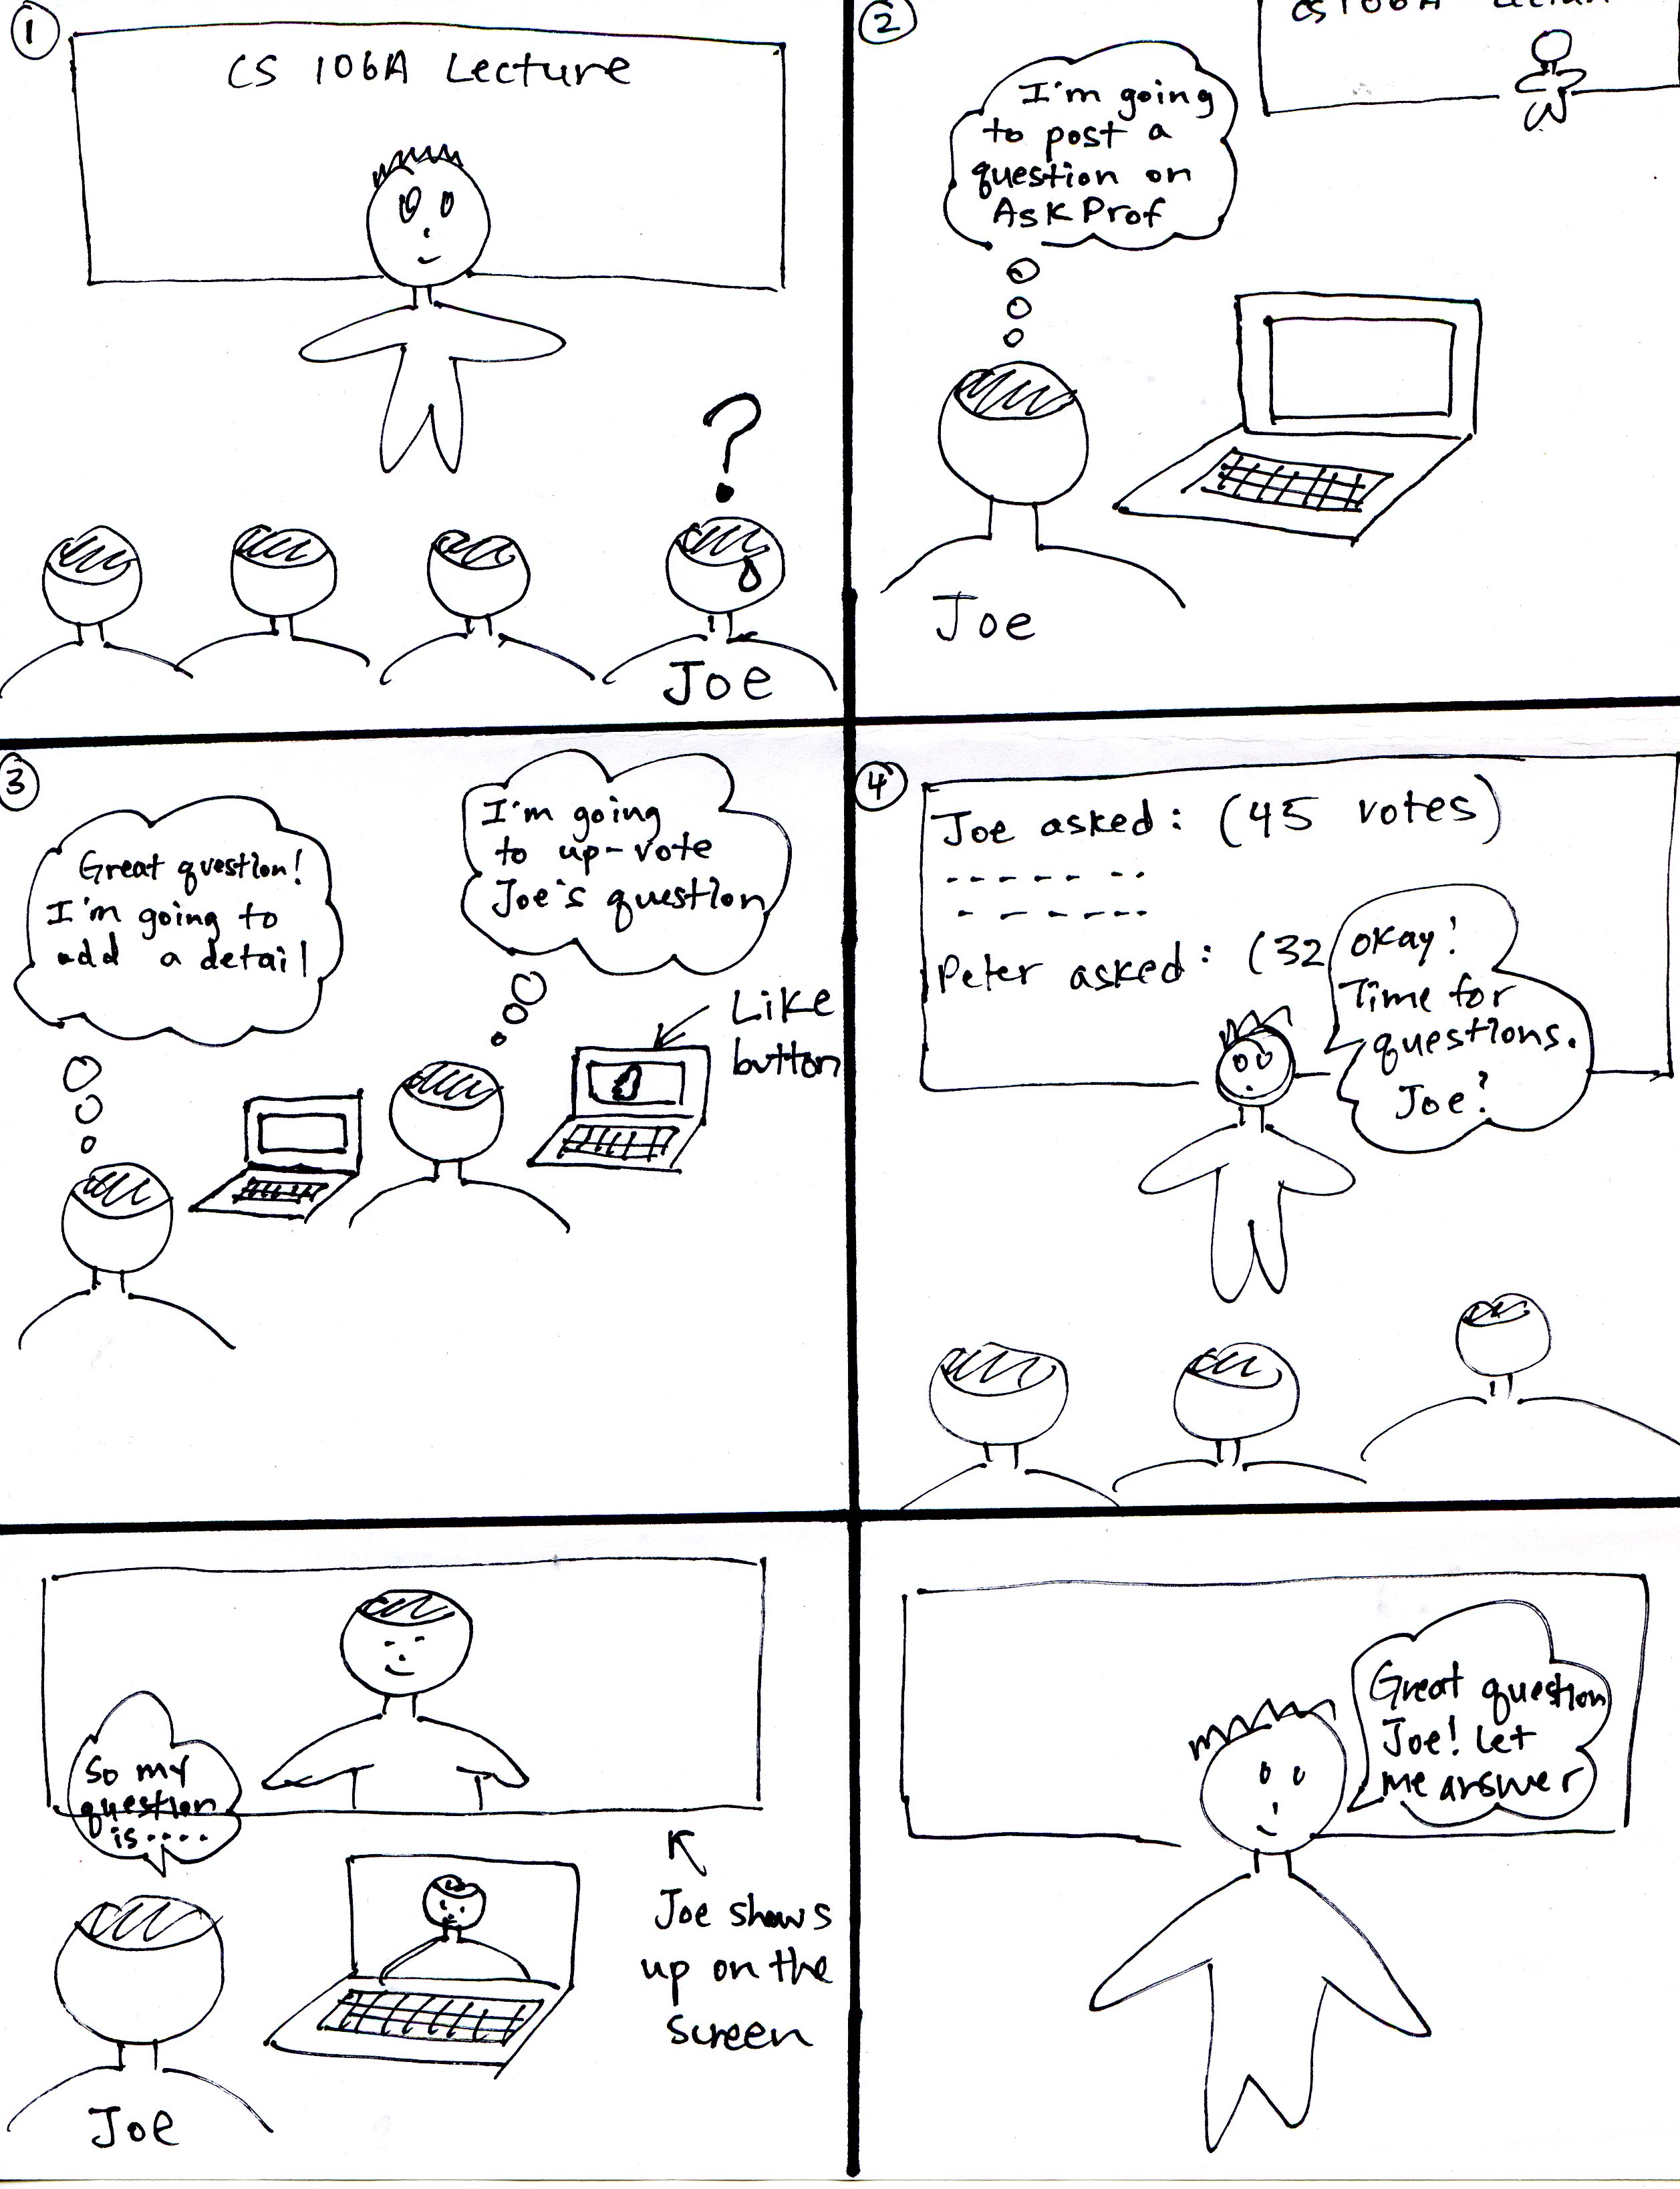 1
CS 106A Lecture
?
Joe
2
CS 106A
I'm going
to post a
question on
Ask Prof
Joe
3
Great question!
I'm going to
add a detail
I'm going
to up-vote
Joe's question
Like
button
4
Joe asked: (45 votes)
Peter asked: (32
okay!
Time for
questions.
Joe?
So my
question
is....
Joe shows
up on the
screen
Joe
Great question
Joe! Let
me answer